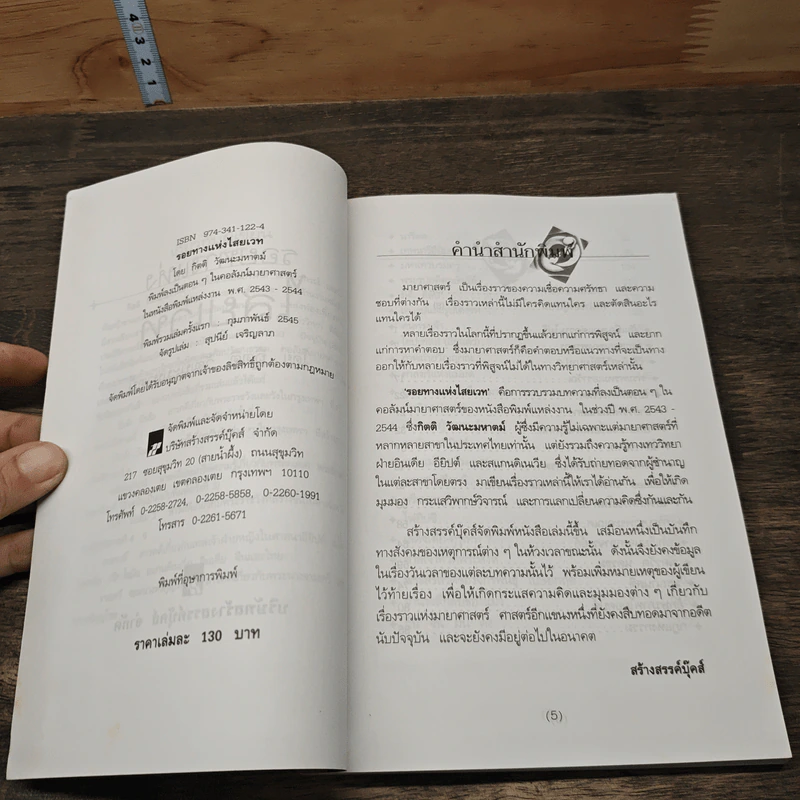 4
3
2
1
ISBN 974-341-122-4
รอยทางแห่งไสยเวท
โดย กิตติ วัฒนะมหาตม์
พิมพ์ลงเป็นตอน ๆ ในคอลัมน์มายาศาสตร์
ในหนังสือพิมพ์แหล่งงาน พ.ศ. 2543 - 2544
พิมพ์รวมเล่มครั้งแรก กุมภาพันธ์ 2545
จัดรูปเล่ม : สุปนีย์ เจริญลาภ
จัดพิมพ์โดยได้รับอนุญาตจากเจ้าของลิขสิทธิ์ถูกต้องตามกฎหมาย
จัดพิมพ์และจัดจำหน่ายโดย
บริษัทสร้างสรรค์บุ๊คส์ จำกัด
217 ซอยสุขุมวิท 20 (สายน้ำผึ้ง) ถนนสุขุมวิท
แขวงคลองเตย เขตคลองเตย กรุงเทพฯ 10110
โทรศัพท์ 0-2258-2724, 0-2258-5858, 0-2260-1991
โทรสาร 0-2261-5671
พิมพ์ที่อุษาการพิมพ์
ราคาเล่มละ 130 บาท
คำนำสำนักพิมพ์
มายาศาสตร์ เป็นเรื่องราวของความเชื่อความศรัทธา และความ
ชอบที่ต่างกัน เรื่องราวเหล่านี้ไม่มีใครคิดแทนใคร และตัดสินอะไร
แทนใครได้
หลายเรื่องราวในโลกนี้ที่ปรากฏขึ้นแล้วยากแก่การพิสูจน์ และยาก
แก่การหาคำตอบ ซึ่งมายาศาสตร์ก็คือคำตอบหรือแนวทางที่จะเป็นทาง
ออกให้กับหลายเรื่องราวที่พิสูจน์ไม่ได้ในทางวิทยาศาสตร์เหล่านั้น
'รอยทางแห่งไสยเวท' คือการรวบรวมบทความที่ลงเป็นตอน ๆ ใน
คอลัมน์มายาศาสตร์ของหนังสือพิมพ์แหล่งงาน ในช่วงปี พ.ศ. 2543 -
2544 ซึ่งกิตติ วัฒนะมหาตม์ ผู้ซึ่งมีความรู้ไม่เฉพาะแต่มายาศาสตร์ที่
หลากหลายสาขาในประเทศไทยเท่านั้น แต่ยังรวมถึงความรู้ทางเทววิทยา
ฝ่ายอินเดีย อียิปต์ และสแกนดิเนเวีย ซึ่งได้รับถ่ายทอดจากผู้ชำนาญ
ในแต่ละสาขาโดยตรง มาเขียนเรื่องราวเหล่านี้ให้เราได้อ่านกัน เพื่อให้เกิด
มุมมอง กระแสวิพากษ์วิจารณ์ และการแลกเปลี่ยนความคิดซึ่งกันและกัน
สร้างสรรค์บุ๊คส์จัดพิมพ์หนังสือเล่มนี้ขึ้น เสมือนหนึ่งเป็นบันทึก
ทางสังคมของเหตุการณ์ต่าง ๆ ในห้วงเวลาขณะนั้น ดังนั้นจึงยังคงข้อมูล
ในเรื่องวันเวลาของแต่ละบทความนั้นไว้ พร้อมเพิ่มหมายเหตุของผู้เขียน
ไว้ท้ายเรื่อง เพื่อให้เกิดกระแสความคิดและมุมมองต่าง ๆ เกี่ยวกับ
เรื่องราวแห่งมายาศาสตร์ ศาสตร์อีกแขนงหนึ่งที่ยังคงสืบทอดมาจากอดีต
นับปัจจุบัน และจะยังคงมีอยู่ต่อไปในอนาคต
สร้างสรรค์บุ๊คส์
(5)